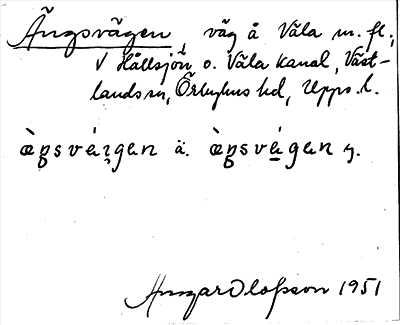 Ängsvägen, väg å Våla m. fl.,
V Hållsjön o. Våla kanal, Väst-
lands sn, Örbyhus hd, Upps. l.
ä. y.
Ansgar Olofsson 1951